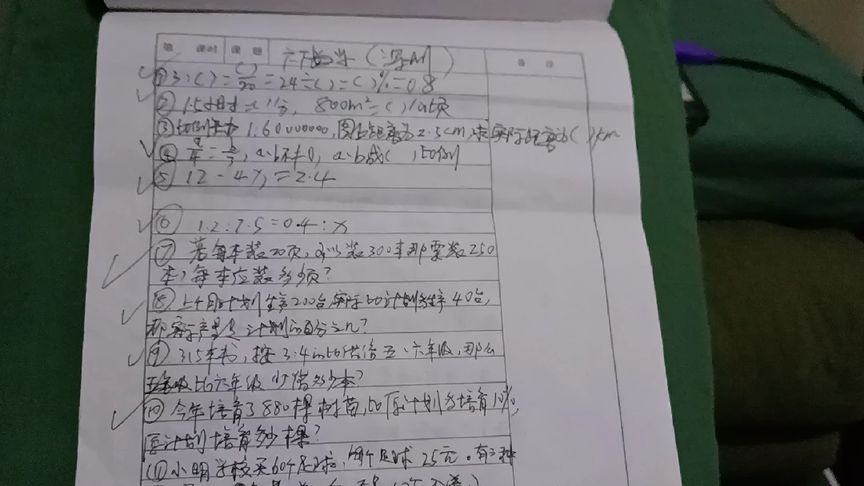 课时 课题 备注
六下数学
①3:( )=( )/20=24÷( )=( )%=0.8
②1.5时=( )分, 800m²=( )公顷
③比例尺 1:6000000,图上距离为2.5cm,求实际距离为( )km
④ a/4=b/3, a、b不为0, a、b成( )比例
⑤ 12-4x=2.4
⑥ 1.2:7.5=0.4:x
⑦ 若每本装20页,可以装300本,那要装250
本,每本应装多少页?
⑧上个月计划生产200台,实际比计划多生产40台,
那实际产量是计划的百分之几?
⑨ 315本书,按3:4的比供给五、六年级,那么
五年级比六年级少借多少本?
⑩今年培育了880棵树苗,比原计划多培育10%,
原计划培育多少棵?
⑪小明学校买60个足球,每个足球25元。有三种